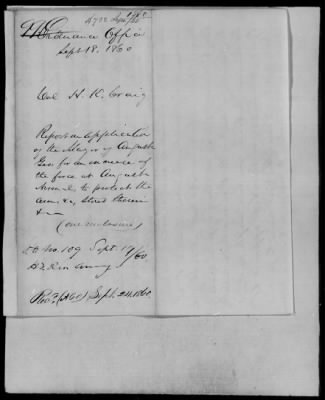 Ordnance Office
Sept 18, 1860
Col. H. K. Craig
Report on application
of the Mayor of Augusta
Geo for an increase of
the force at Augusta
Arsenal to protect the
arms &c, stored therein
&c
(one enclosure)
No 109 Sept 19/60
Sept. 24. 1860